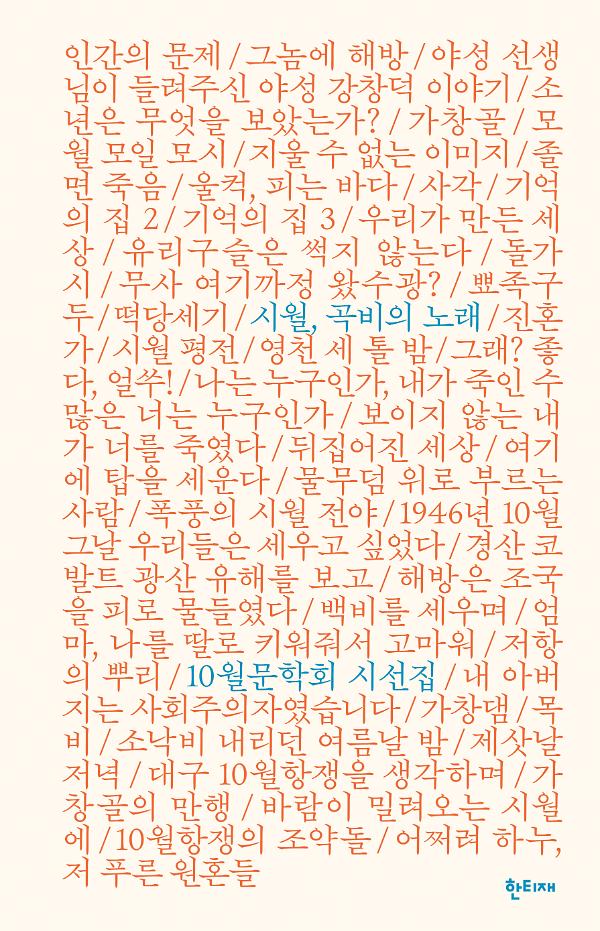 인간의 문제 / 그놈에 해방 / 야성 선생
님이 들려주신 야성 강창덕 이야기 / 소
년은 무엇을 보았는가? / 가창골 / 모
월 모일 모시 / 지울 수 없는 이미지 / 졸
면 죽음 / 울컥, 피는 바다 / 사각 / 기억
의 집 2 / 기억의 집 3 / 우리가 만든 세
상 / 유리구슬은 썩지 않는다 / 돌가
시 / 무사 여기까정 왔수광? / 뾰족구
두 / 떡당세기 / 시월, 곡비의 노래 / 진혼
가 / 시월 평전 / 영천 세 톨 밤 / 그래? 좋
다, 얼쑤! / 나는 누구인가, 내가 죽인 수
많은 너는 누구인가 / 보이지 않는 내
가 너를 죽였다 / 뒤집어진 세상 / 여기
에 탑을 세운다 / 물무덤 위로 부르는
사람 / 폭풍의 시월 전야 / 1946년 10월
그날 우리들은 세우고 싶었다 / 경산 코
발트 광산 유해를 보고 / 해방은 조국
을 피로 물들였다 / 백비를 세우며 / 엄
마, 나를 딸로 키워줘서 고마워 / 저항
의 뿌리 / 10월문학회 시선집 / 내 아버
지는 사회주의자였습니다 / 가창댐 / 목
비 / 소낙비 내리던 여름날 밤 / 제삿날
저녁 / 대구 10월항쟁을 생각하며 / 가
창골의 만행 / 바람이 밀려오는 시월
에 / 10월항쟁의 조약돌 / 어쩌려 하누,
저 푸른 원혼들
한티재